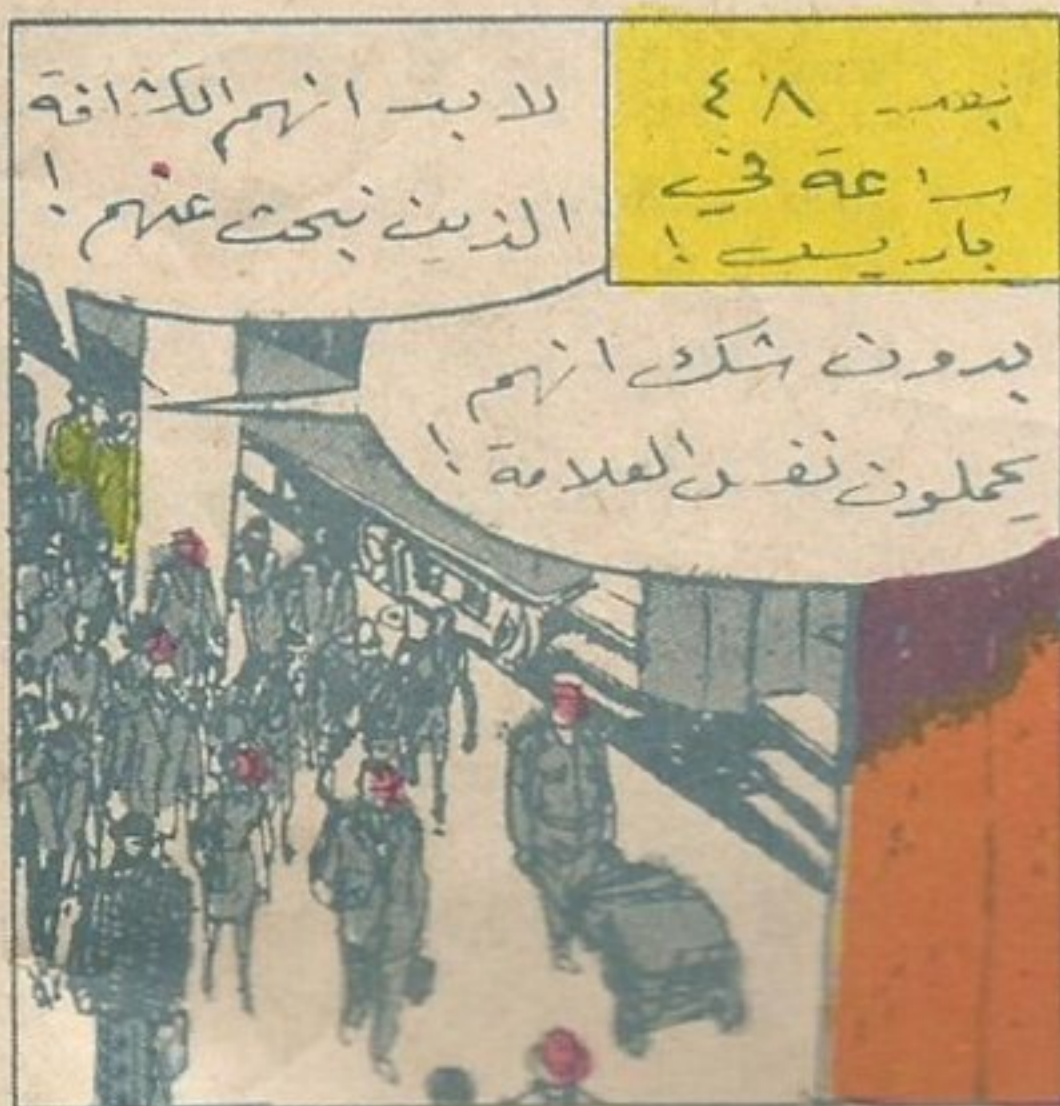 بعد ٤٨
ساعة في
باريس !
لا بد انهم الكشافة
الذين نبحث عنهم !
بدون شك انهم
يحملون نفس العلامة !